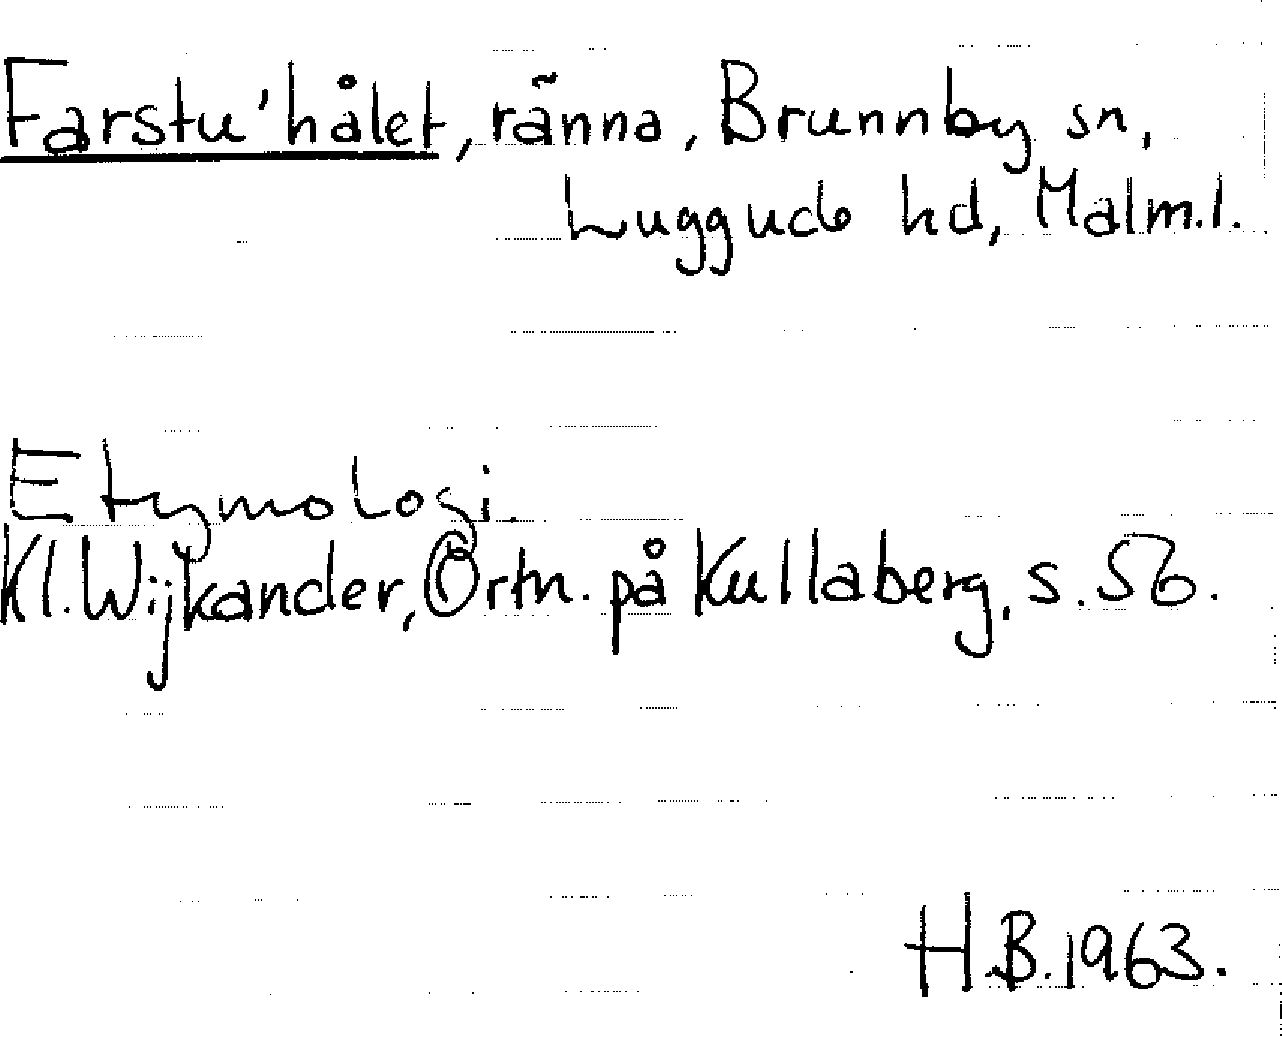 Farstu'hålet, ränna, Brunnby sn,
Luggude hd, Malm.l.
Etymologi.
Kl. Wijkander, Ortn. på Kullaberg, s. 56.
H.B. 1963.